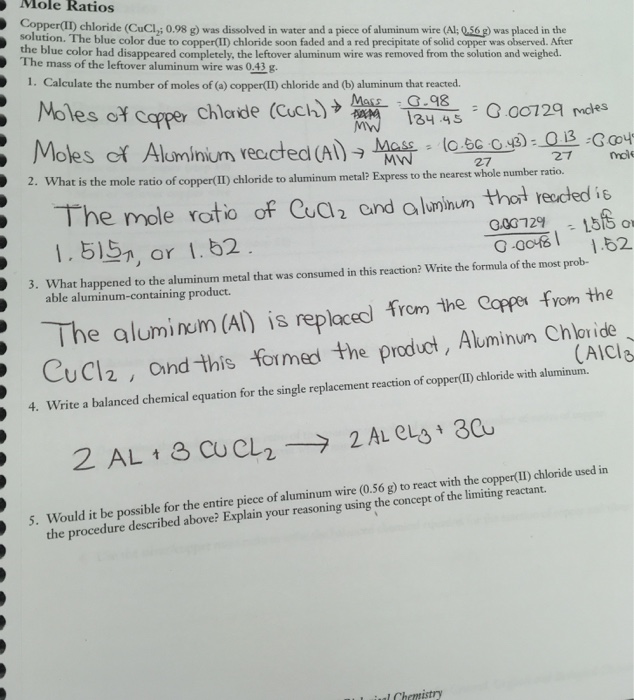 Mole Ratios
Copper(II) chloride (CuCl₂; 0.98 g) was dissolved in water and a piece of aluminum wire (Al; 0.56 g) was placed in the
solution. The blue color due to copper(II) chloride soon faded and a red precipitate of solid copper was observed. After
the blue color had disappeared completely, the leftover aluminum wire was removed from the solution and weighed.
The mass of the leftover aluminum wire was 0.43 g.
1. Calculate the number of moles of (a) copper(II) chloride and (b) aluminum that reacted.
Moles of copper chloride (CuCl₂) → Mass/MW = 0.98/134.45 = 0.00729 moles
Moles of Aluminium reacted (Al) → Mass/MW = (0.56-0.43)/27 = 0.13/27 = 0.004 mole
2. What is the mole ratio of copper(II) chloride to aluminum metal? Express to the nearest whole number ratio.
The mole ratio of CuCl₂ and aluminum that reacted is
1.515, or 1.52.
0.00729/0.00481 = 1.515 or
1.52
3. What happened to the aluminum metal that was consumed in this reaction? Write the formula of the most prob-
able aluminum-containing product.
The aluminum (Al) is replaced from the copper from the
CuCl₂, and this formed the product, Aluminum Chloride
(AlCl₃
4. Write a balanced chemical equation for the single replacement reaction of copper(II) chloride with aluminum.
2 AL + 3 CUCL₂ → 2 ALCL3 + 3Cu
5. Would it be possible for the entire piece of aluminum wire (0.56 g) to react with the copper(II) chloride used in
the procedure described above? Explain your reasoning using the concept of the limiting reactant.
Chemistry